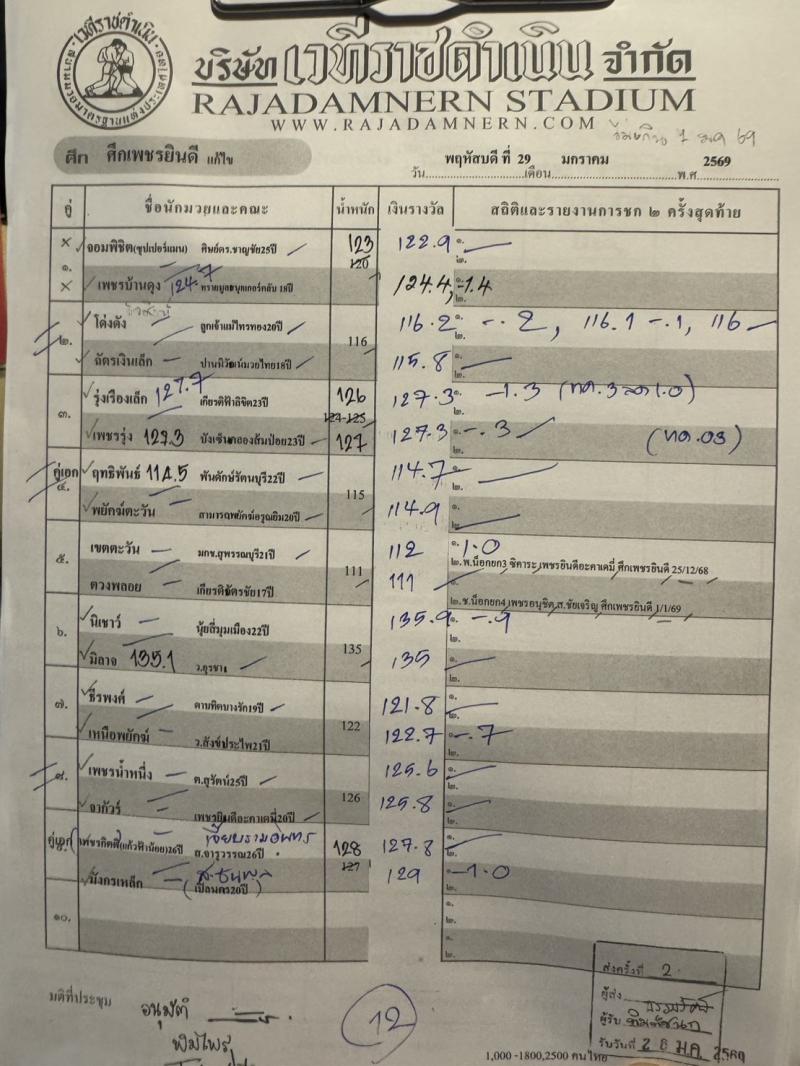 เวทีราชดำเนิน
บริษัท เวทีราชดำเนิน จำกัด
RAJADAMNERN STADIUM
WWW.RAJADAMNERN.COM
ศึก ศึกเพชรยินดี แก้ไข
พฤหัสบดี ที่ 29 มกราคม 2569
วัน เดือน พ.ศ.
คู่ ชื่อนักมวยและคณะ น้ำหนัก เงินรางวัล สถิติและรายงานการชก ๒ ครั้งสุดท้าย
× จอมพิชิต(ซุปเปอร์แมน) ศิษย์ดร.ชาญชัย25ปี 123 122.9 ๑.
๑. 120 ๒.
× เพชรบ้านดุง 124.7 18ปี 124.4, -1.4 ๑.
๒.
๒. โด่งดัง ลูกเจ้าแม่ไทรทอง20ปี 116 116.2 ๑. -.2, 116.1 -.1, 116
๒.
ฉัตรเงินเล็ก 18ปี 115.8 ๑.
๒.
๓. รุ่งเรืองเล็ก 127.7 เกียรติฟ้าลิขิต23ปี 126 127.3 ๑. -1.3
124-125 ๒.
เพชรรุ่ง 127.3 บังเซ็นกลองส้มป่อย23ปี 127 127.3 ๑. -.3
๒.
คู่เอก ฤทธิพันธ์ 114.5 พันดักษ์รัตนบุรี22ปี 115 114.7 ๑.
๔. ๒.
พยัคฆ์ตะวัน สามารถพยัคฆ์อรุณยิม20ปี 114.9 ๑.
๒.
๕. เขตตะวัน มกช.สุพรรณบุรี21ปี 111 112 ๑. 1.0
๒. พ.น็อกยก3 ซิคาระ เพชรยินดีอะคาเดมี่ ศึกเพชรยินดี 25/12/68
ดวงพลอย เกียรติฉัตรชัย17ปี 111 ๑.
๒. ช.น็อกยก4 เพชรอนุชิต ส.ชัยเจริญ ศึกเพชรยินดี 1/1/69
๖. นิเชาว์ นุ้ยสี่มุมเมือง22ปี 135 135.9 -.9 ๑.
๒.
มิลาจ 135.1 135 ๑.
๒.
๗. ธีรพงศ์ ดาบทิตบางรัก19ปี 122 121.8 ๑.
๒.
เหนือพยัคฆ์ ว.สังข์ประไพ21ปี 122.7 ๑. -.7
๒.
๘. เพชรน้ำหนึ่ง ต.สุรัตน์25ปี 126 125.6 ๑.
๒.
จากัวร์ เพชรยินดีอะคาเดมี่20ปี 125.8 ๑.
๒.
คู่เอก เพชรกิตติ(แก้วฟ้าน้อย)26ปี ส.จารุวรรณ26ปี 128 127.8 ๑.
127 ๒.
มังกรเหล็ก 20ปี 129 ๑. -1.0
๒.
๑๐. ๑.
๒.
๑.
๒.
มติที่ประชุม อนุมัติ
12
ส่งครั้งที่ 2
ผู้ส่ง
ผู้รับ
รับวันที่ 28 ม.ค. 2569
1,000 -1800,2500 คนไทย